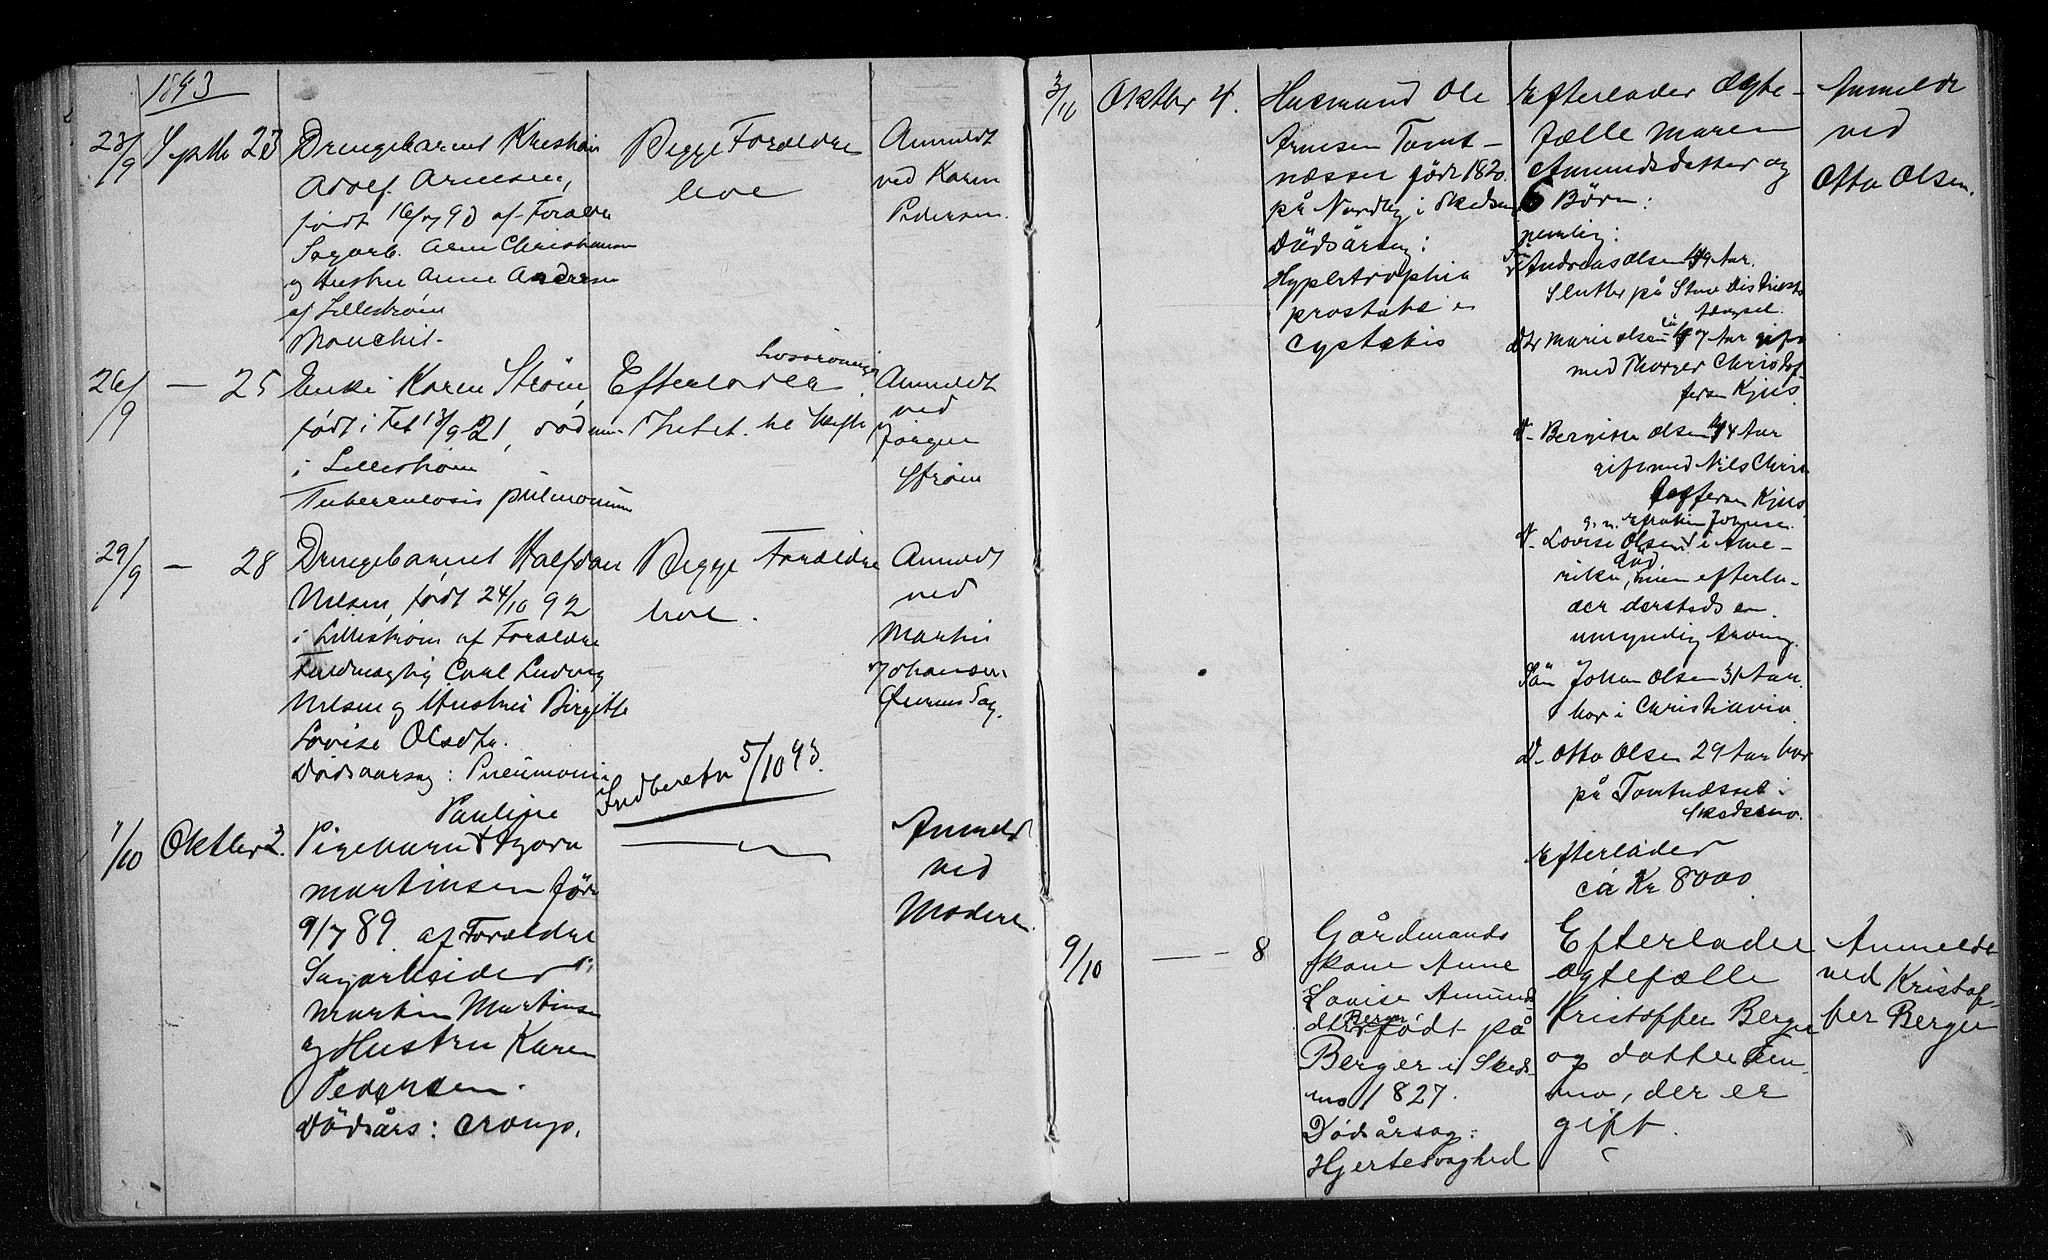 1893
23/9 Septb 23 Drengebarnet Khristian
Adolf Arnesen,
født 16/7 93 af Forældre
Sagarb. Arne Christiansen
og Hustru Anne Andersen
af Lillestrøm
Begge Forældre
leve
Anmeldt
ved Karen
Pedersen.
26/9 — 25 Enke Karen Strøm,
født i Fet 13/9 21, død
i Lillestrøm
Tuberculosis pulmonum
Efterlader
Intet.
Anmeldt
ved
Jørgen
Strøm
29/9 — 28 Drengebarnet Halfdan
Nilsen, født 24/10 92
i Lillestrøm af Forældre
Fuldmægtig Carl Ludvig
Nilsen og Hustru Birgitte
Lovise Olsdtr.
Dødsaarsag: Pneumoni
Begge Forældre
leve.
Anmeldt
ved
Martin
Johansen
Indberetn 5/10 93.
/10 Oktber 2. Pauline
Pigebarn
Martinsen født
9/7 89. af Forældre
Sagarbeider
Martin Martinsen
og Hustru Karen
Pedersen.
Dødsårs: Croup.
Anmeldt
ved
Moderen.
3/10 Oktber 4. Husmand Ole
Arnesen Tomt-
næsset født 1820.
på Nordby i Skedsmo
Dødsårsag:
Hypertrophia
prostatae
Cystitis
Efterlader Ægte-
fælle Maren
Amundsdatter og
6 Børn:
nemlig:
Andreas Olsen 49 Aar.
Slutter på Store Distrikts
fængsel.
Dtr Marie Olsen 47 Aar gift
med Thorger Christof-
fersen Kjus
D- Bergitte Olsen 44 Aar
gift med Nils Chris
toffersen Kjus
D- Lovise Olsen i Ame-
rika, død men efterla-
der dersteds en
umyndig Arving
Søn Johan Olsen 31 Aar.
bor i Christiania
D- Otto Olsen 29 Aar bor
på Tomtnæsset i
Skedsmo.
Efterlader
ca Kr 8000
Anmeldt
ved
Otto Olsen.
9/10 — - 8 Gårdmands
kone Anne
Lovise Amunds
dtr Berger født på
Berger i Skeds-
mo 1827.
Dødsårsag:
Hjertesvaghed
Efterlader
ægtefælle
Kristoffer Berger
og datter Em-
ma, der er
gift.
Anmeldt
ved Kristof-
fer Berger